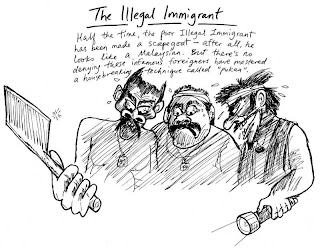 The Illegal Immigrant
Half the time, the poor Illegal Immigrant
has been made a scapegoat — after all, he
looks like a Malaysian. But there's no
denying these infamous foreigners have mastered
a housebreaking technique called "pukau".